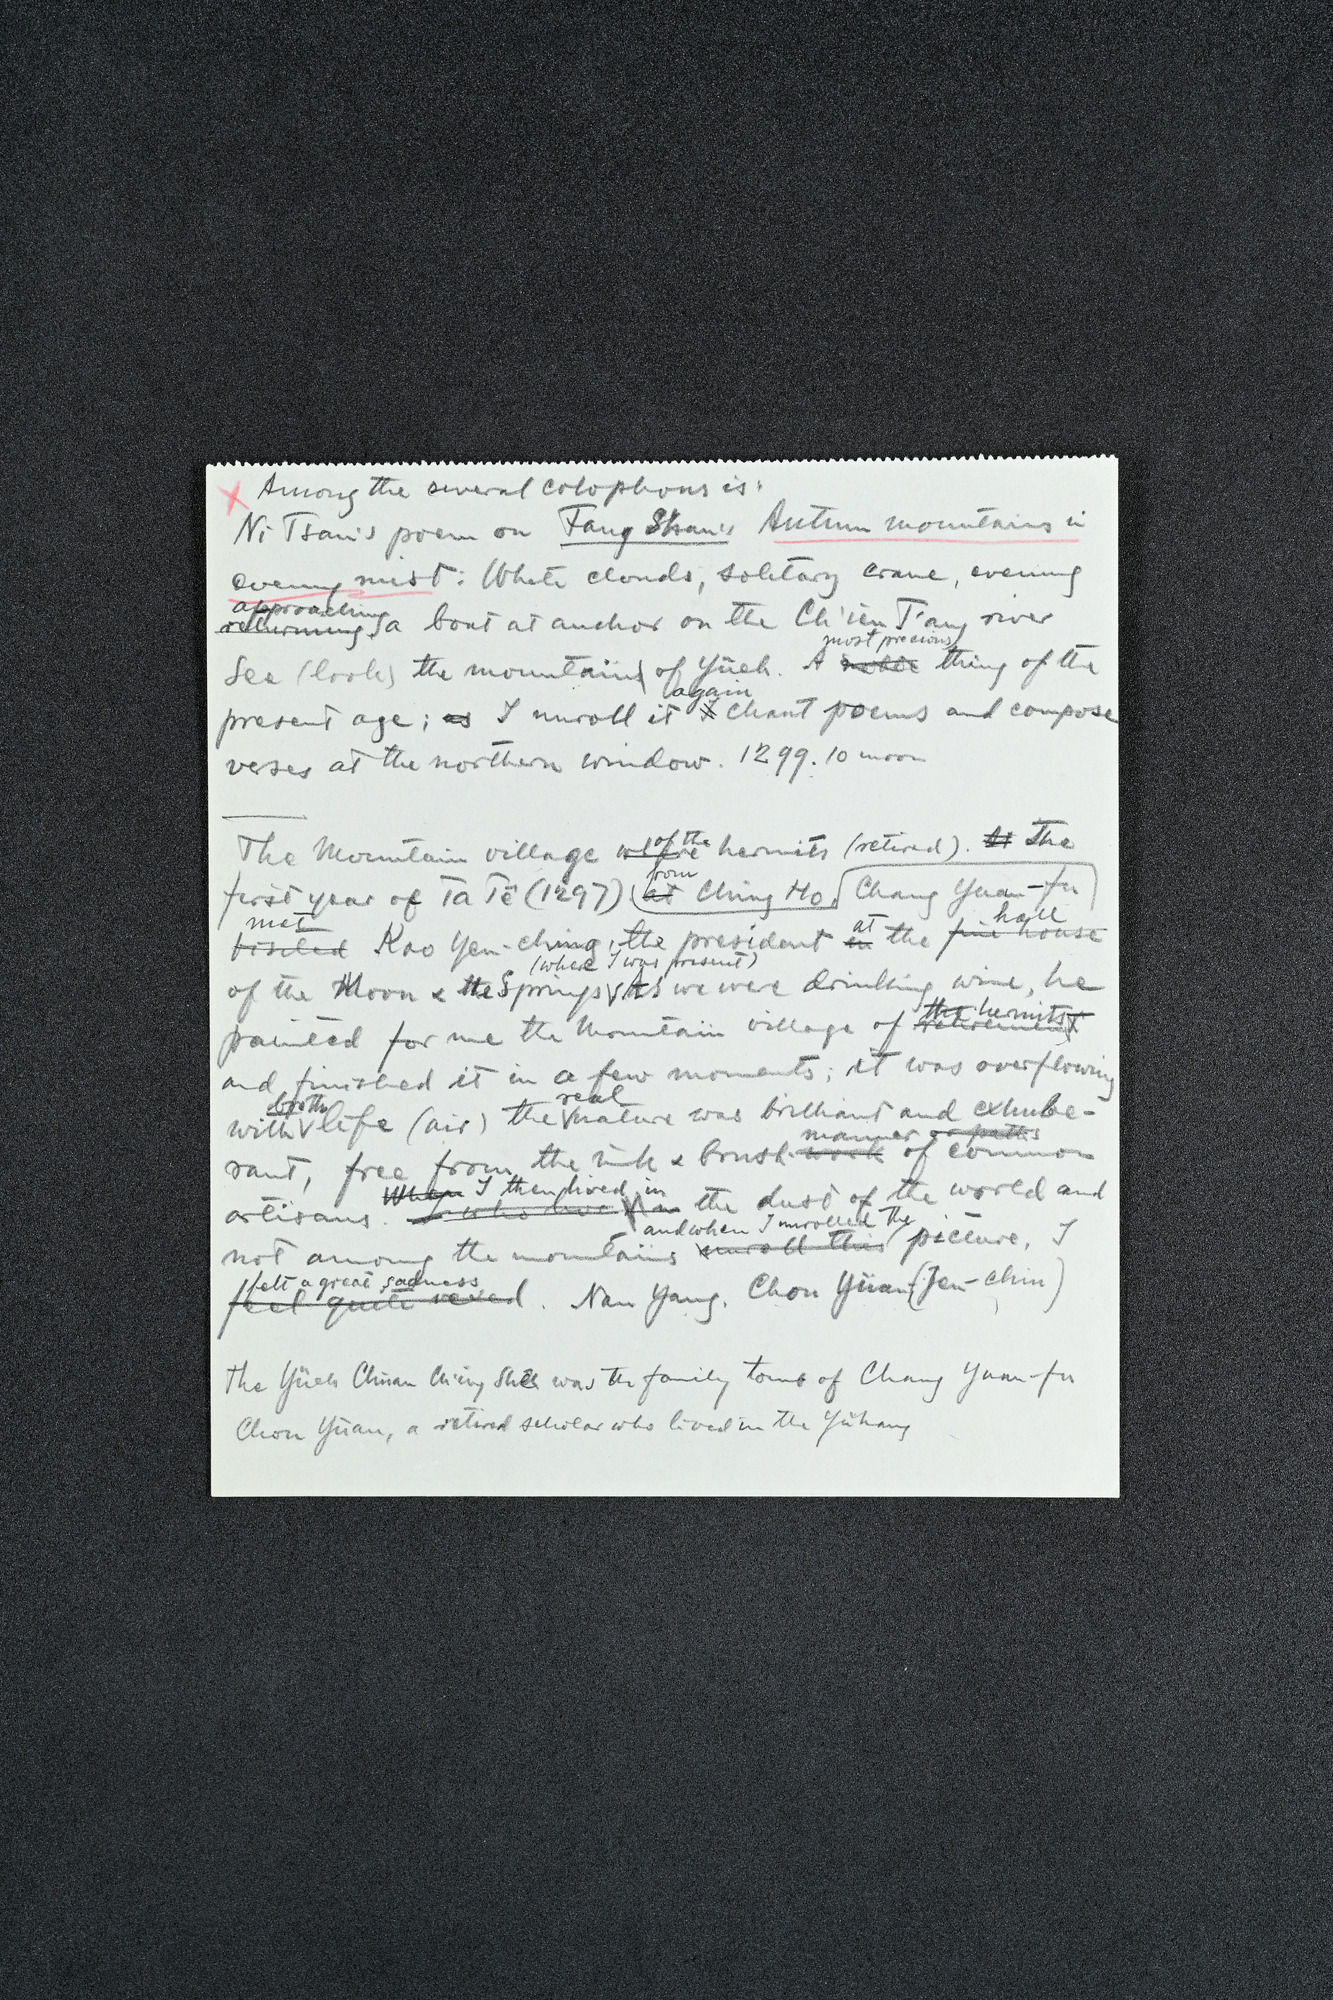 x Among the several colophons is:
Ni Tsan's poem on Fang Shan's Autumn mountains in
evening mist: White clouds, solitary crane, evening
approaching
returning, a boat at anchor on the Ch'ien T'ang river
most precious
See (look) the mountains of Yüeh. A noble thing of the
again
present age; as I unroll it I chant poems and compose
verses at the northern window. 1299. 10 moon
of the
The Mountain village where hermits (retired). At The
from
first year of Ta Tê (1297) (at Ching Ho) Chang Yuan-fu
met at hall
visited Kao Yen-ching, the president in the fine house
(where I was present)
of the Moon & the Springs As we were drinking wine, he
the hermits
painted for me the Mountain village of retirement
and finished it in a few moments; it was overflowing
both real
with life (air) the nature was brilliant and exhube-
manner or paths
rant, free from the ink & brush work of common
When I then lived in
artisans. I who live in the dust of the world and
and when I unrolled the
not among the mountains unroll this picture, I
felt a great sadness
feel quite vexed. Nan Yang. Chou Yüan (Jen-chin)
The Yüeh Chüan Ch'ing Shêh was the family tomb of Chang Yuan-fu
Chou Yüan, a retired scholar who lived in the Yühang